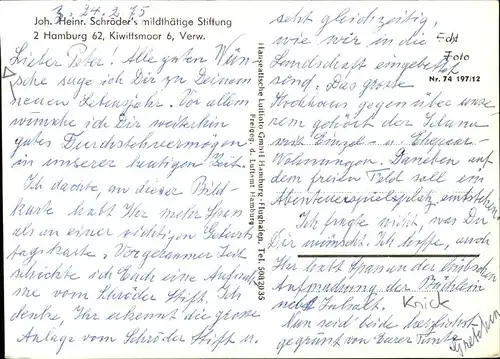 z. 24.2.75
Joh. Heinr. Schröder's mildthätige Stiftung
2 Hamburg 62, Kiwittsmoor 6, Verw.
Lieber Peter! Alle guten Wün-
sche sage ich Dir zu Deinem
neuen Lebensjahr. Vor allem
wünsche ich Dir weiterhin
gutes Durchstehvermögen
in unserer heutigen Zeit.
Ich dachte, an dieser Bild-
karte habt Ihr mehr Spass
als an einer richtigen Geburts-
tagskarte. Vorgestern Zeit
schickte ich Euch eine Aufnah-
me vom Schröder Stift. Ich
denke, Ihr erkennt die grosse
Anlage vom Schröder Stift u.
Hanseatische Luftfoto GmbH Hamburg-Flughafen, Tel. 5082035
Freigeg. d. Luftamt Hamburg
seht gleichzeitig,
wie wir in die
Landschaft eingebettet
sind. Das grosse
Hochhaus gegenüber unse-
rem gehört der
mit Einzel- u. Ehepaar-
Wohnungen. Daneben auf
dem freien Feld soll ein
Abenteuerspielplatz entstehen.
Ich fragte nicht, was Du
Dir wünscht. Ich hoffe, auch
Ihr habt Spass an der hübschen
Aufmachung der Büchlein
nebst Inhalt.
Nun seid beide herzlichst
gegrüsst von Eurer Tante
Gretchen
Echt
Foto
Nr. 74 197/12
Knick